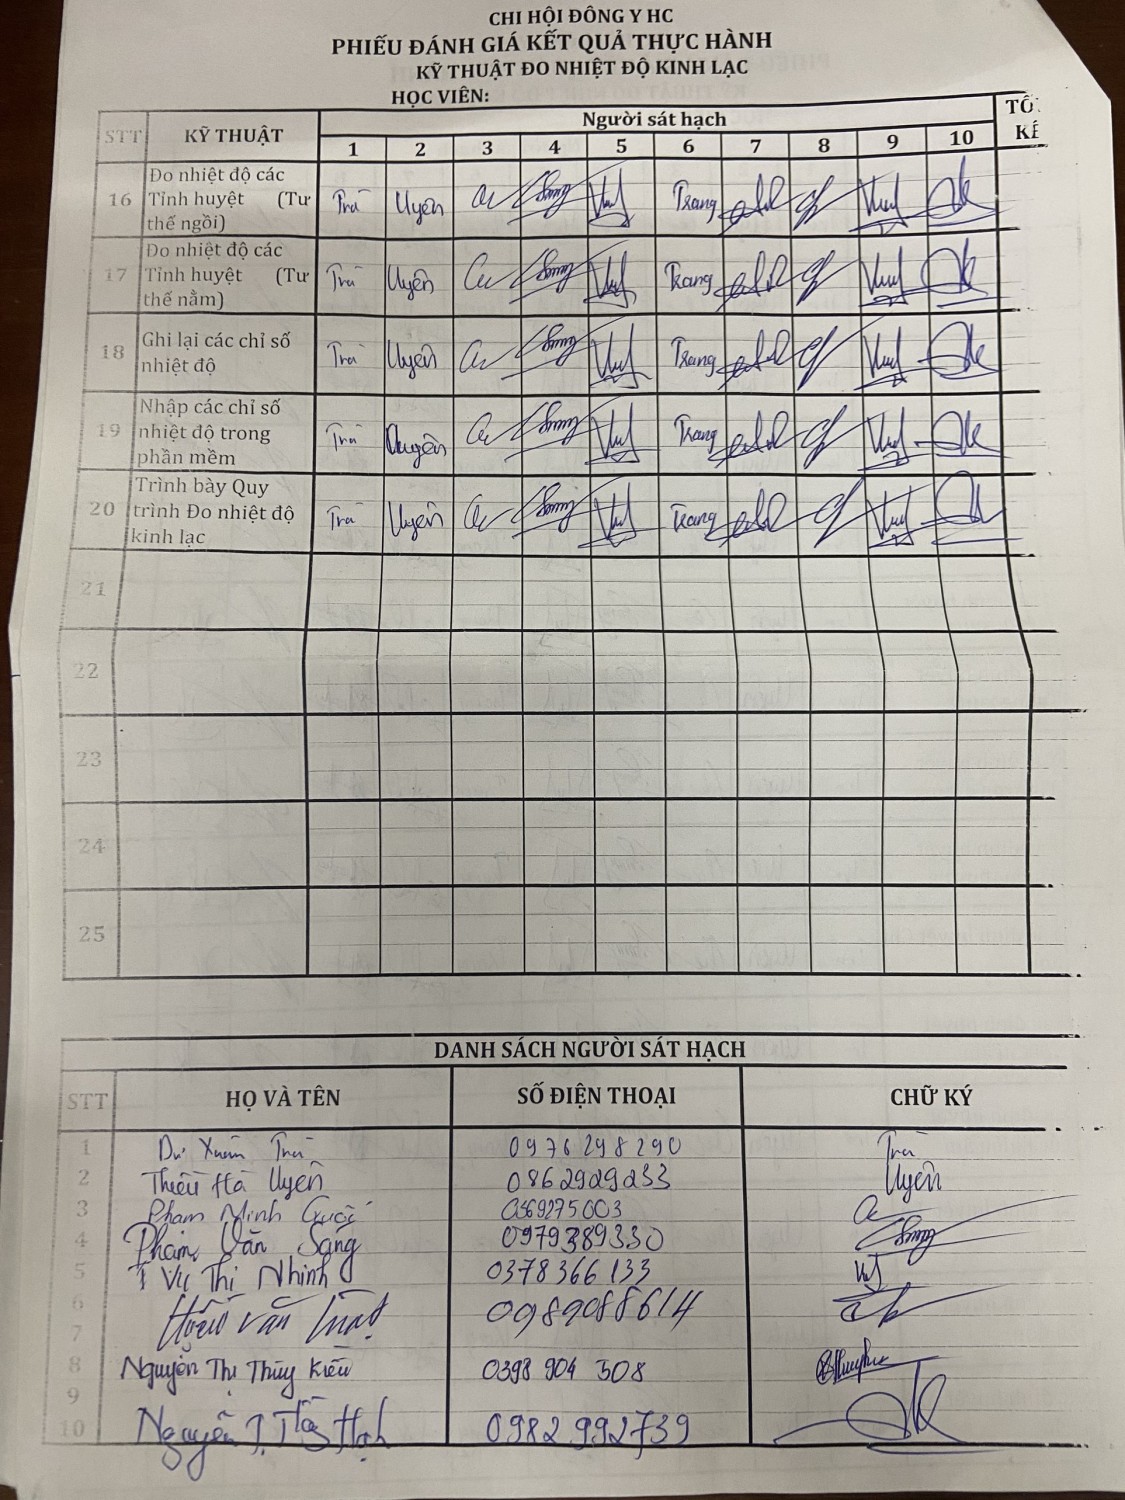 CHI HỘI ĐÔNG Y HC
PHIẾU ĐÁNH GIÁ KẾT QUẢ THỰC HÀNH
KỸ THUẬT ĐO NHIỆT ĐỘ KINH LẠC
HỌC VIÊN:
STT KỸ THUẬT Người sát hạch
1 2 3 4 5 6 7 8 9 10
16 Đo nhiệt độ các Tỉnh huyệt (Tư thế ngồi) Trà Uyên Trang
17 Đo nhiệt độ các Tỉnh huyệt (Tư thế nằm) Trà Uyên Trang
18 Ghi lại các chỉ số nhiệt độ Trà Uyên Trang
19 Nhập các chỉ số nhiệt độ trong phần mềm Trà Uyên Trang
20 Trình bày Quy trình Đo nhiệt độ kinh lạc Trà Uyên Trang
21
22
23
24
25
DANH SÁCH NGƯỜI SÁT HẠCH
STT HỌ VÀ TÊN SỐ ĐIỆN THOẠI CHỮ KÝ
1 Xuân Trà 0976298290 Trà
2 Thiều Hà Uyên 0862929233 Uyên
3 Phạm Minh 0369275003
4 Phạm Văn Sáng 0979389330
5 Vũ Thị Nhinh 0378366133
6 Văn 0989088614
7
8 Nguyễn Thị Thúy Kiều 0398 904 508
9
10 Nguyễn T. 0982992739